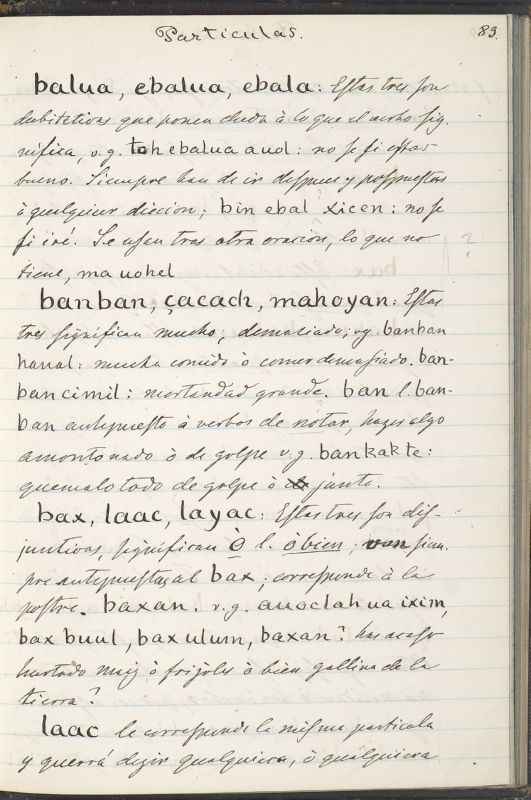 Particulas. 83.
balua, ebalua, ebala: Estas tres son
dubitativas que ponen duda à lo que el verbo sig.
nifica, v.g. tohebalua a uol: no se si estas
bueno. Siempre han de ir despues y pospuestas
à qualquier diccion; bin ebal xicen: no se
si iré. Se usan tras otra oracion, lo que no ?
tiene, ma uohel
banban, çacach, mahoyan: Estas
tres significan mucho, demasiado; vg banban
hanal: mucha comida ò comer demasiado. ban-
ban cimil: mortandad grande. ban l. ban-
ban antepuesto à verbos de notar, hazer algo
amontonado ò de golpe v.g. bankakte:
quemalo todo de golpe ò junto.
bax, laac, layac: Estas tres son dis-
juntivas, significan Ò l. òbien, van siem.
pre antepuestas al bax; corresponde à la
postre. baxan. v.g. auoclah ua ixim,
bax buul, bax ulum, baxan? has acaso
hurtado maiz ò frijoles ò bien gallina de la
tierra?
laac le corresponde la misma particula
y querrá dezir qualquiera, ò qualquiera